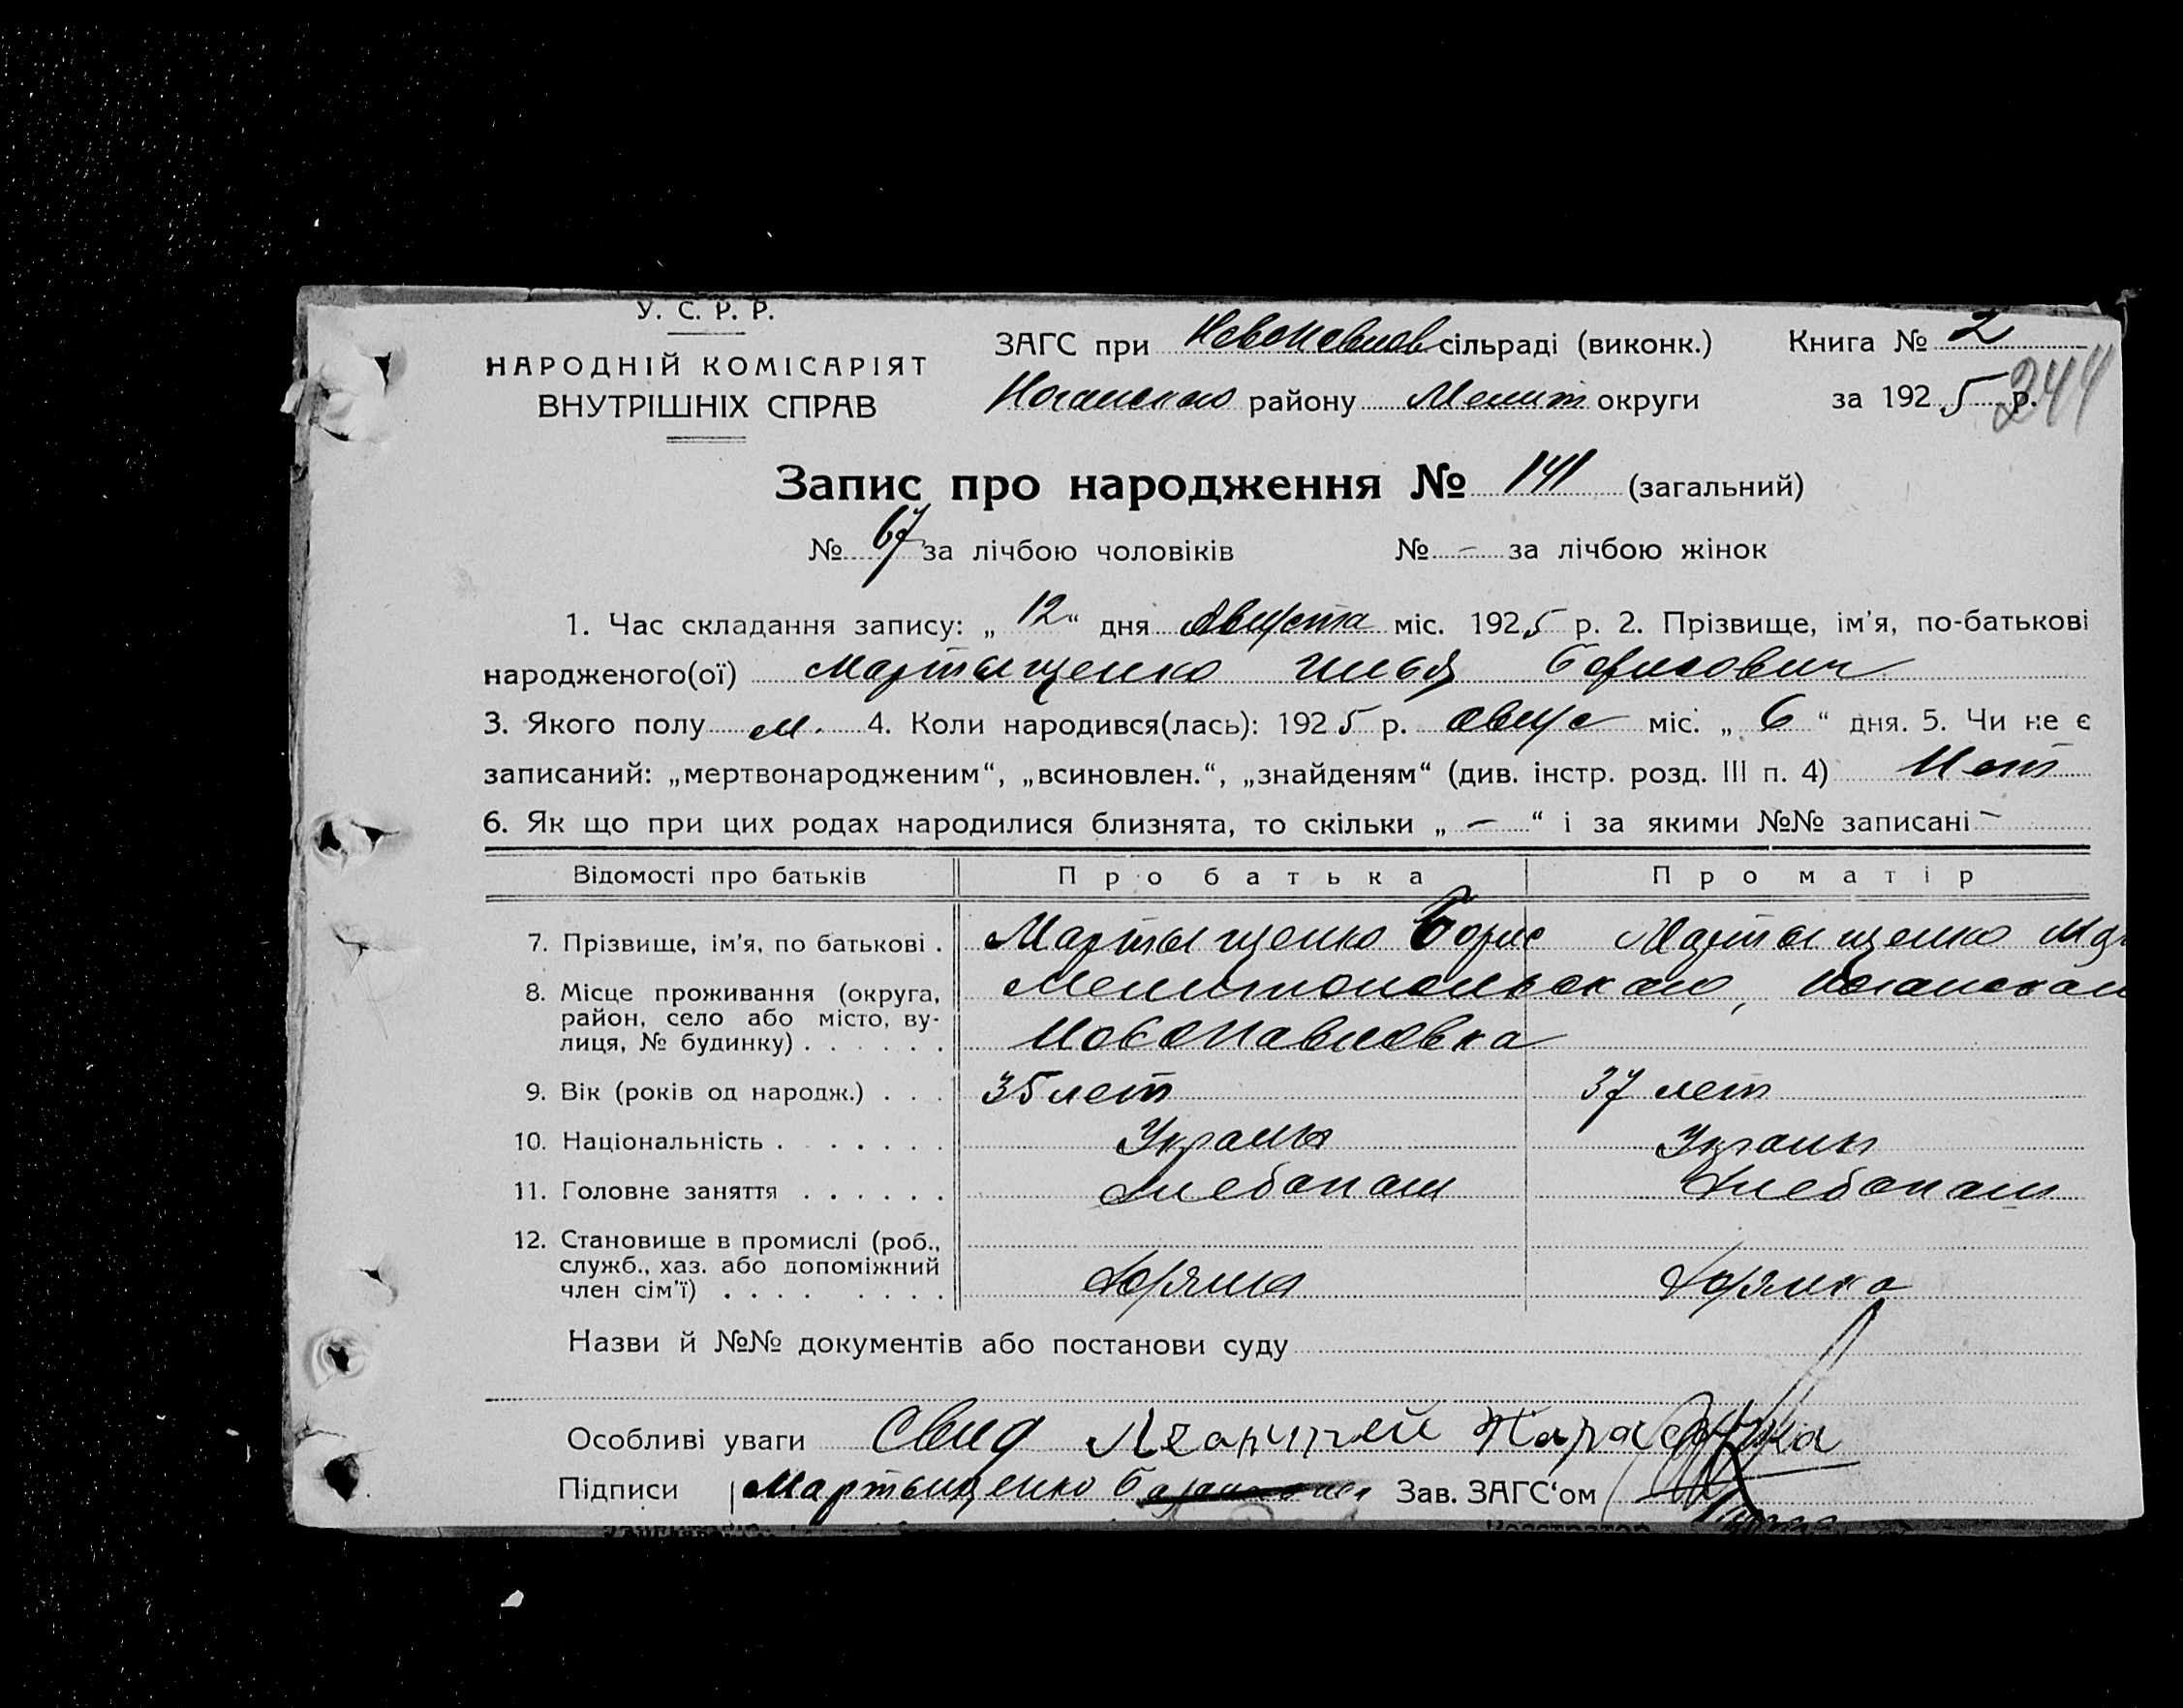 У. С. Р. Р.
НАРОДНІЙ КОМІСАРІЯТ
ВНУТРІШНІХ СПРАВ
ЗАГС при Новопавлов сільраді (виконк.) Книга № 2
Ногайского району Мелит округи за 1925 р.
244
Запис про народження № 141 (загальний)
№ 67 за лічбою чоловіків № – за лічбою жінок
1. Час складання запису: „12“ дня Августа міс. 1925 р. 2. Прізвище, ім'я, по-батькові
народженого(ої) Мартыщенко Илья Борисович
3. Якого полу м. 4. Коли народився(лась): 1925 р. авгус міс. „6“ дня. 5. Чи не є
записаний: „мертвонародженим“, „всиновлен.“, „знайденям“ (див. інстр. розд. III п. 4) Нет
6. Як що при цих родах народилися близнята, то скільки „–“ і за якими №№ записані –
Відомості про батьків Про батька Про матір
7. Прізвище, ім'я, по батькові . Мартыщенко Борис Мартыщенко
8. Місце проживання (округа, район, село або місто, вулиця, № будинку) Мелитопольского, Ногайского
Новопавловка
9. Вік (років од народж.) . . . 35 лет 37 лет
10. Національність . . . . . . . Украин Украин
11. Головне заняття . . . . . . Хлебопаш Хлебопаш
12. Становище в промислі (роб., служб., хаз. або допоміжний член сім'ї) . . . . . . . .
Назви й №№ документів або постанови суду
Особливі уваги Свид
Підписи Мартыщенко Зав. ЗАГС'ом